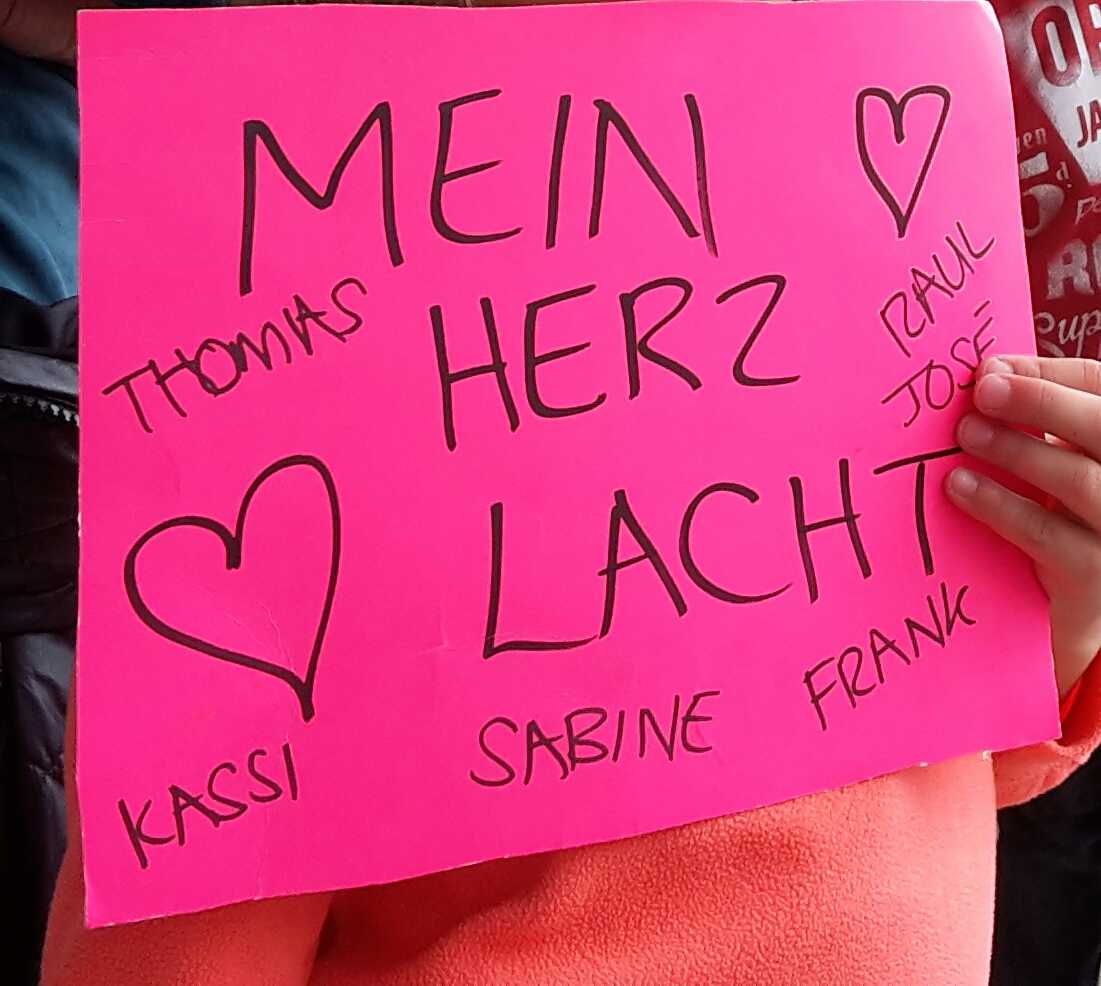 MEIN
HERZ
LACHT
THOMAS
RAUL
JOSE
KASSI
SABINE
FRANK
JA